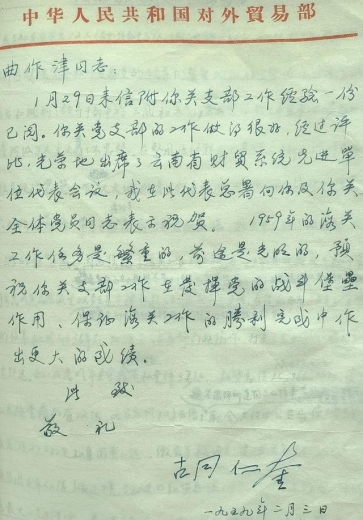 中华人民共和国对外貿易部
曲作津同志：
1月29日来信附你关支部工作经验一份
已阅。你关党支部的工作做的很好，经过评
比，光荣地出席了云南省财贸系统先进單
位代表会议，我在此代表总署向你及你关
全体党员同志表示祝贺。 1959年的海关
工作任务是繁重的，前途是光明的，预
祝你关支部工作在發揮党的战斗堡壘
作用、保证海关工作的勝利完成中作
出更大的成绩。
此致
敬礼
古同仁
一九五九年二月三日